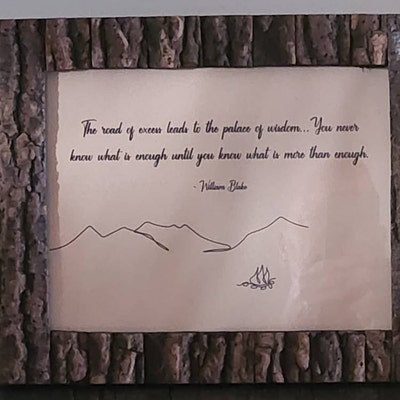 The road of excess leads to the palace of wisdom... You never
know what is enough until you know what is more than enough.
- William Blake